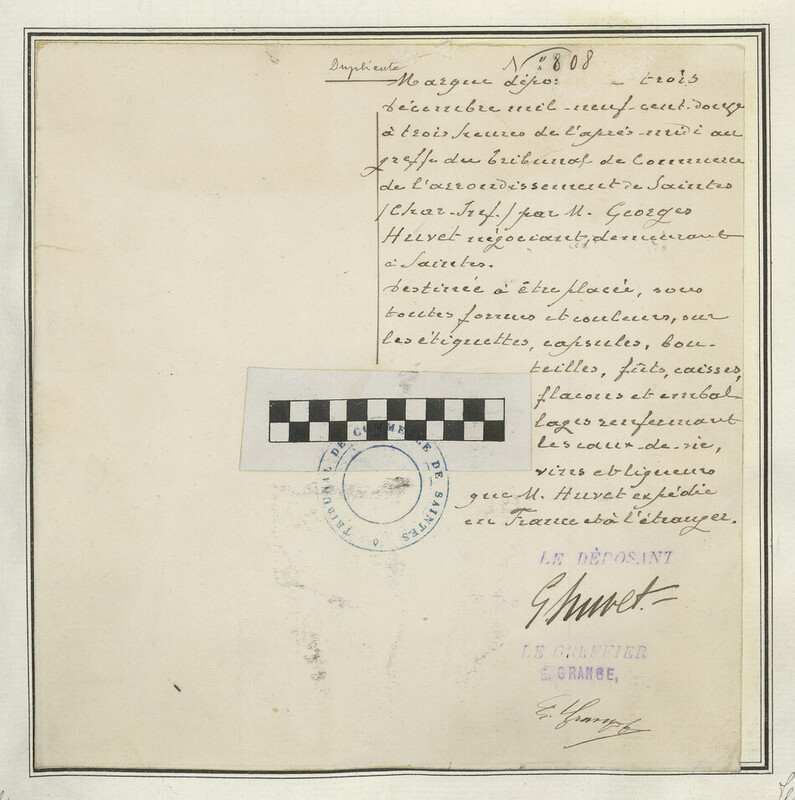 Duplicata
N° 808
Marque dépo: trois
décembre mil-neuf-cent-douze
à trois heures de l'après-midi au
greffe du tribunal de Commerce
de l'arrondissement de Saintes
(Char-Inf.) par M. Georges
Huvet négociant, demeurant
à Saintes.
Destinée à être placée, sous
toutes formes et couleurs, sur
les étiquettes, capsules, bou-
teilles, fûts, caisses,
flacons et embal-
lages renfermant
les eaux-de-vie,
vins et liqueurs
que M. Huvet expédie
en France et à l'étranger.
TRIBUNAL DE COMMERCE DE SAINTES
LE DÉPOSANT
G Huvet
LE GREFFIER
E. GRANGE,